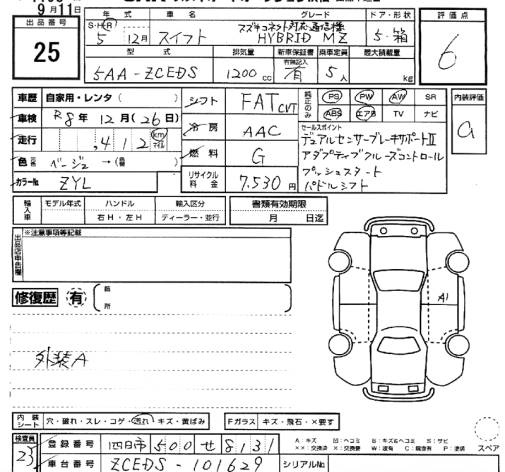 9月11日
出品番号
25
年式 車名 グレード ドア・形状 評価点
S・H・R 5年 12月 スイフト スズキコネクト対応通信機 HYBRID MZ 5・箱 6
型式 排気量 新車保証書 乗車定員 最大積載量
有無記入
5AA-ZCEDS 1200cc 有 5人 kg
車歴 自家用・レンタ( )
車検 R8年12月(26日)
走行 ,412 km マイル
色 ベージュ→( )
カラーNo. ZYL
シフト FAT CVT
冷房 AAC
燃料 G
リサイクル料金 7,530円
純正のみ PS PW AW SR
ABS エアB TV ナビ
内装評価
a
セールスポイント
デュアルセンサーブレーキサポートII
アダプティブクルーズコントロール
プッシュスタート
パドルシフト
輸入車 モデル年式 ハンドル 輸入区分 書類有効期限
右H・左H ディーラー・並行 月 日迄
※注意事項等記載
修復歴 有 箇所
A1
外装A
内装シート 穴・破れ・スレ・コゲ・汚れ・キズ・黄ばみ Fガラス キズ・飛石・×要す
検査員 23
登録番号 四日市 500 せ 8131
車台番号 ZCEDS-101629 シリアルNo.
A:キズ U:ヘコミ B:キズ&ヘコミ S:サビ
××:交換済 ×:交換要 W:波有 C:腐食有 P:塗装
スペア